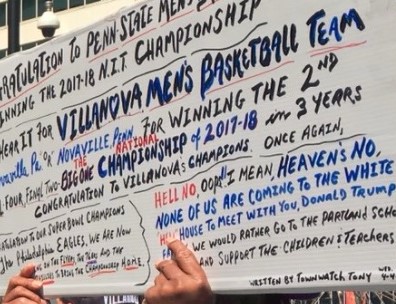 GRATULATION TO PENN-STATE MEN'S
NNING THE 2017-18 N.I.T CHAMPIONSHIP
HEAR IT FOR VILLANOVA MEN'S BASKETBALL TEAM
NOVAVILLE, PENN. FOR WINNING THE 2ND
THE BIG ONE NATIONAL CHAMPIONSHIP of 2017-18 in 3 YEARS
FOUR, FINAL TWO
CONGRATULATION TO VILLANOVA'S CHAMPIONS. ONCE AGAIN,
HELL NO, OOP!! I MEAN, HEAVEN'S NO,
NONE OF US ARE COMING TO THE WHITE
HOUSE TO MEET WITH YOU, DONALD TRUMP
WE WOULD RATHER GO TO THE PARTLAND SCHO
AND SUPPORT THE CHILDREN & TEACHERS
ATULATION TO OUR SUPER BOWL CHAMPIONS
The Philadelphia EAGLES. WE ARE NOW
ON THE FLYERS, THE AND THE
BRING THE CHAMPIONSHIP HOME.
WRITTEN BY TOWNWATCH TONY